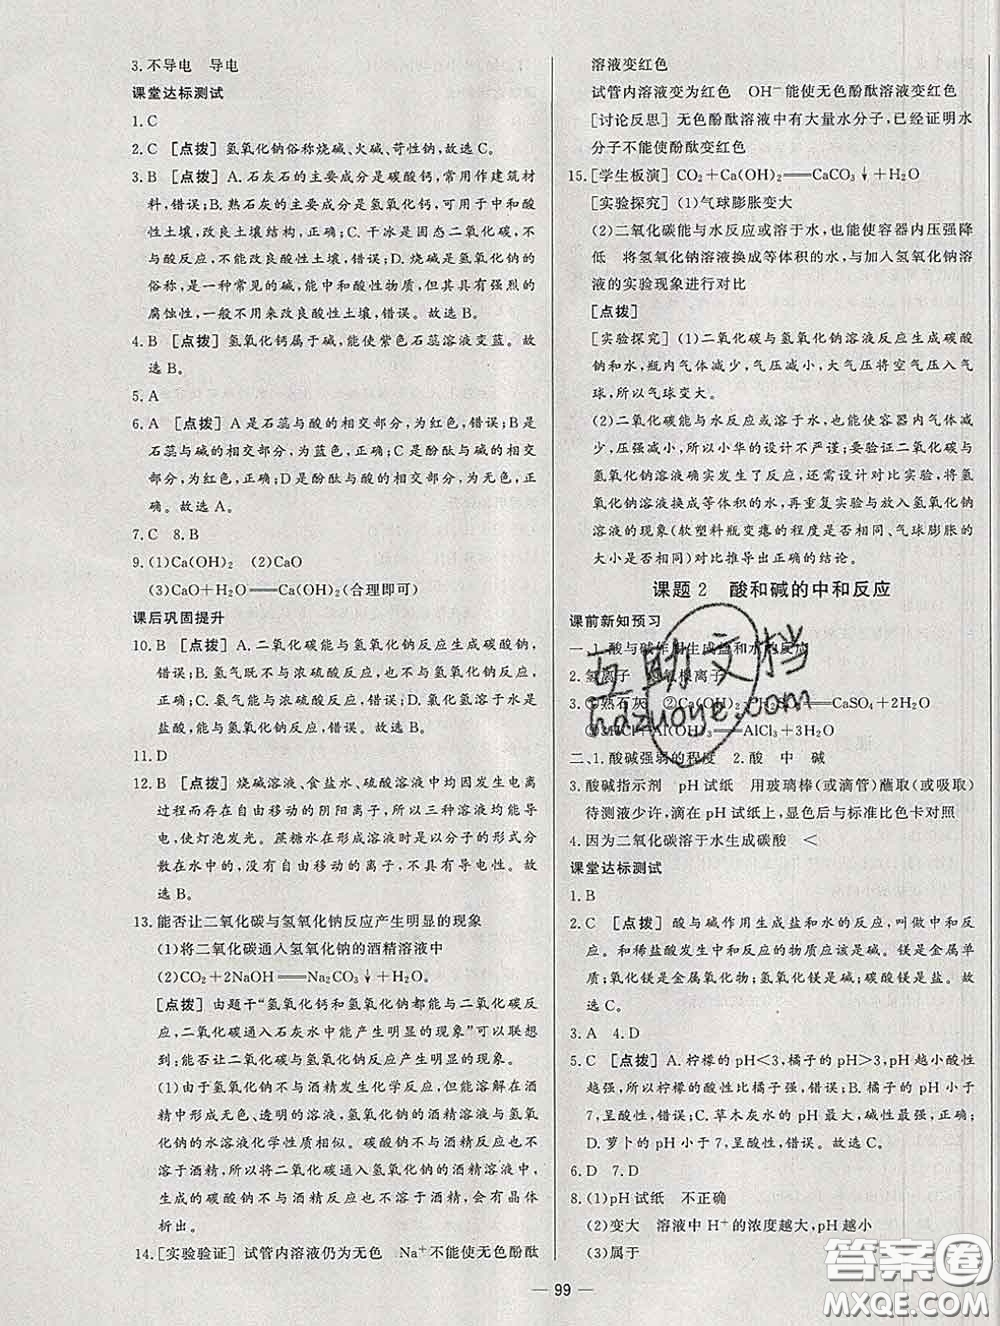 3.不导电　导电
课堂达标测试
1.C
2.C　[点拨]　氢氧化钠俗称烧碱、火碱、苛性钠,故选C。
3.B　[点拨]　A.石灰石的主要成分是碳酸钙,常用作建筑材
料,错误;B.熟石灰的主要成分是氢氧化钙,可用于中和酸
性土壤,改良土壤结构,正确;C.干冰是固态二氧化碳,不
与酸反应,不能改良酸性土壤,错误;D.烧碱是氢氧化钠的
俗称,是一种常见的碱,能中和酸性物质,但其具有强烈的
腐蚀性,一般不用来改良酸性土壤,错误。故选B。
4.B　[点拨]　氢氧化钙属于碱,能使紫色石蕊溶液变蓝。故
选B。
5.A
6.A　[点拨]　A是石蕊与酸的相交部分,为红色,错误;B是
石蕊与碱的相交部分,为蓝色,正确;C是酚酞与碱的相交
部分,为红色,正确;D是酚酞与酸的相交部分,为无色,正
确。故选A。
7.C　8.B
9.(1)Ca(OH)₂　(2)CaO
(3)CaO+H₂O══Ca(OH)₂(合理即可)
课后巩固提升
10.B　[点拨]　A.二氧化碳能与氢氧化钠反应生成碳酸钠,
错误;B.氢气既不与浓硫酸反应,也不与氢氧化钠反应,正
确;C.氨气能与浓硫酸反应,错误;D.氯化氢溶于水是
盐酸,能与氢氧化钠反应,错误。故选B。
11.D
12.B　[点拨]　烧碱溶液、食盐水、硫酸溶液中均因发生电离
过程而存在自由移动的阴阳离子,所以三种溶液均能导
电,使灯泡发光。蔗糖水在形成溶液时是以分子的形式分
散在水中的,没有自由移动的离子,不具有导电性。故
选B。
13.能否让二氧化碳与氢氧化钠反应产生明显的现象
(1)将二氧化碳通入氢氧化钠的酒精溶液中
(2)CO₂+2NaOH══Na₂CO₃↓+H₂O。
[点拨]　由题干“氢氧化钙和氢氧化钠都能与二氧化碳反
应,二氧化碳通入石灰水中能产生明显的现象”可以联想
到:能否让二氧化碳与氢氧化钠反应产生明显的现象。
(1)由于氢氧化钠不与酒精反应,氢氧化钠能溶解在酒
精中形成无色、透明的溶液,氢氧化钠的酒精溶液与氢氧
化钠的水溶液化学性质相似。碳酸钠不与酒精反应也不
溶于酒精,所以将二氧化碳通入氢氧化钠的酒精溶液中,
生成的碳酸钠不与酒精反应也不溶于酒精,会以晶体
析出。
14.[实验验证]　试管内溶液仍为无色　Na⁺不能使无色酚酞
溶液变红色
试管内溶液变为红色　OH⁻能使无色酚酞溶液变红色
[讨论反思]　无色酚酞溶液中有大量水分子,已经证明水
分子不能使酚酞变红色
15.[学生板演]　CO₂+Ca(OH)₂══CaCO₃↓+H₂O
[实验探究]　(1)气球膨胀变大
(2)二氧化碳能与水反应或溶于水,也能使容器内压强降
低　将氢氧化钠溶液换成等体积的水,与加入氢氧化钠溶
液的实验现象进行对比
[点拨]
[实验探究]　(1)二氧化碳与氢氧化钠溶液反应生成碳酸
钠和水,瓶内气体减少,气压减小,大气压将空气压入气
球,所以气球变大。
(2)二氧化碳能与水反应或溶于水,也能使容器内气体减
少,压强减小,所以小华的设计不严谨;要验证二氧化碳与
氢氧化钠溶液确实发生了反应,还需设计对比实验,将氢
氧化钠溶液换成等体积的水,再重复实验与放入氢氧化钠
溶液的现象(软塑料瓶变瘪的程度是否相同、气球膨胀的
大小是否相同)对比推导出正确的结论。
课题2　酸和碱的中和反应
课前新知预习
一、1.酸与碱作用生成盐和水的反应
2.氢离子　氢氧根离子
3.①熟石灰　②Ca(OH)₂══CaSO₄+2H₂O
③3HCl+Al(OH)₃══AlCl₃+3H₂O
二、1.酸碱强弱的程度　2.酸　中　碱
3.酸碱指示剂　pH试纸　用玻璃棒(或滴管)蘸取(或吸取)
待测液少许,滴在pH试纸上,显色后与标准比色卡对照
4.因为二氧化碳溶于水生成碳酸　<
课堂达标测试
1.B
2.C　[点拨]　酸与碱作用生成盐和水的反应,叫做中和反
应。和稀盐酸发生中和反应的物质应该是碱。镁是金属单
质;氧化镁是金属氧化物;氢氧化镁是碱;碳酸镁是盐。故
选C。
3.A　4.D
5.C　[点拨]　A.柠檬的pH<3,橘子的pH>3,pH越小酸性
越强,所以柠檬的酸性比橘子强,错误;B.橘子的pH小于
7,呈酸性,错误;C.草木灰水的pH最大,碱性最强,正确;
D.萝卜的pH小于7,呈酸性,错误。故选C。
6.D　7.D
8.(1)pH试纸　不正确
(2)变大　溶液中H⁺的浓度越大,pH越小
(3)属于
99
互助文档
hdzuoye.com
答案圈
MXQE.COM